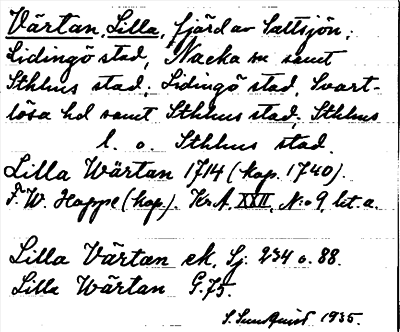 Värtan, Lilla, fjärd av Saltsjön,
Lidingö stad, Nacka sn samt
Sthlms stad, Lidingö stad, Svart-
lösa hd samt Sthlms stad, Sthlms
l. o. Sthlms stad.
Lilla Wärtan 1714 (kop. 1740).
F. W. Hoppe (kop.). Kr.A. XXII, N:o 9, lit. a.
Lilla Värtan ek. Sj. 234 o. 88.
Lilla Wärtan G.75.
S. Sundquist 1935.